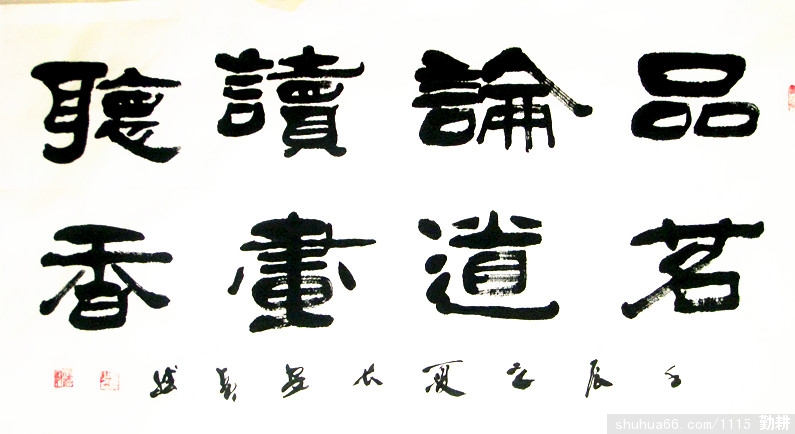 品茗
論道
讀畫
聽香
壬辰之夏
shuhua66.com/1115 勤耕